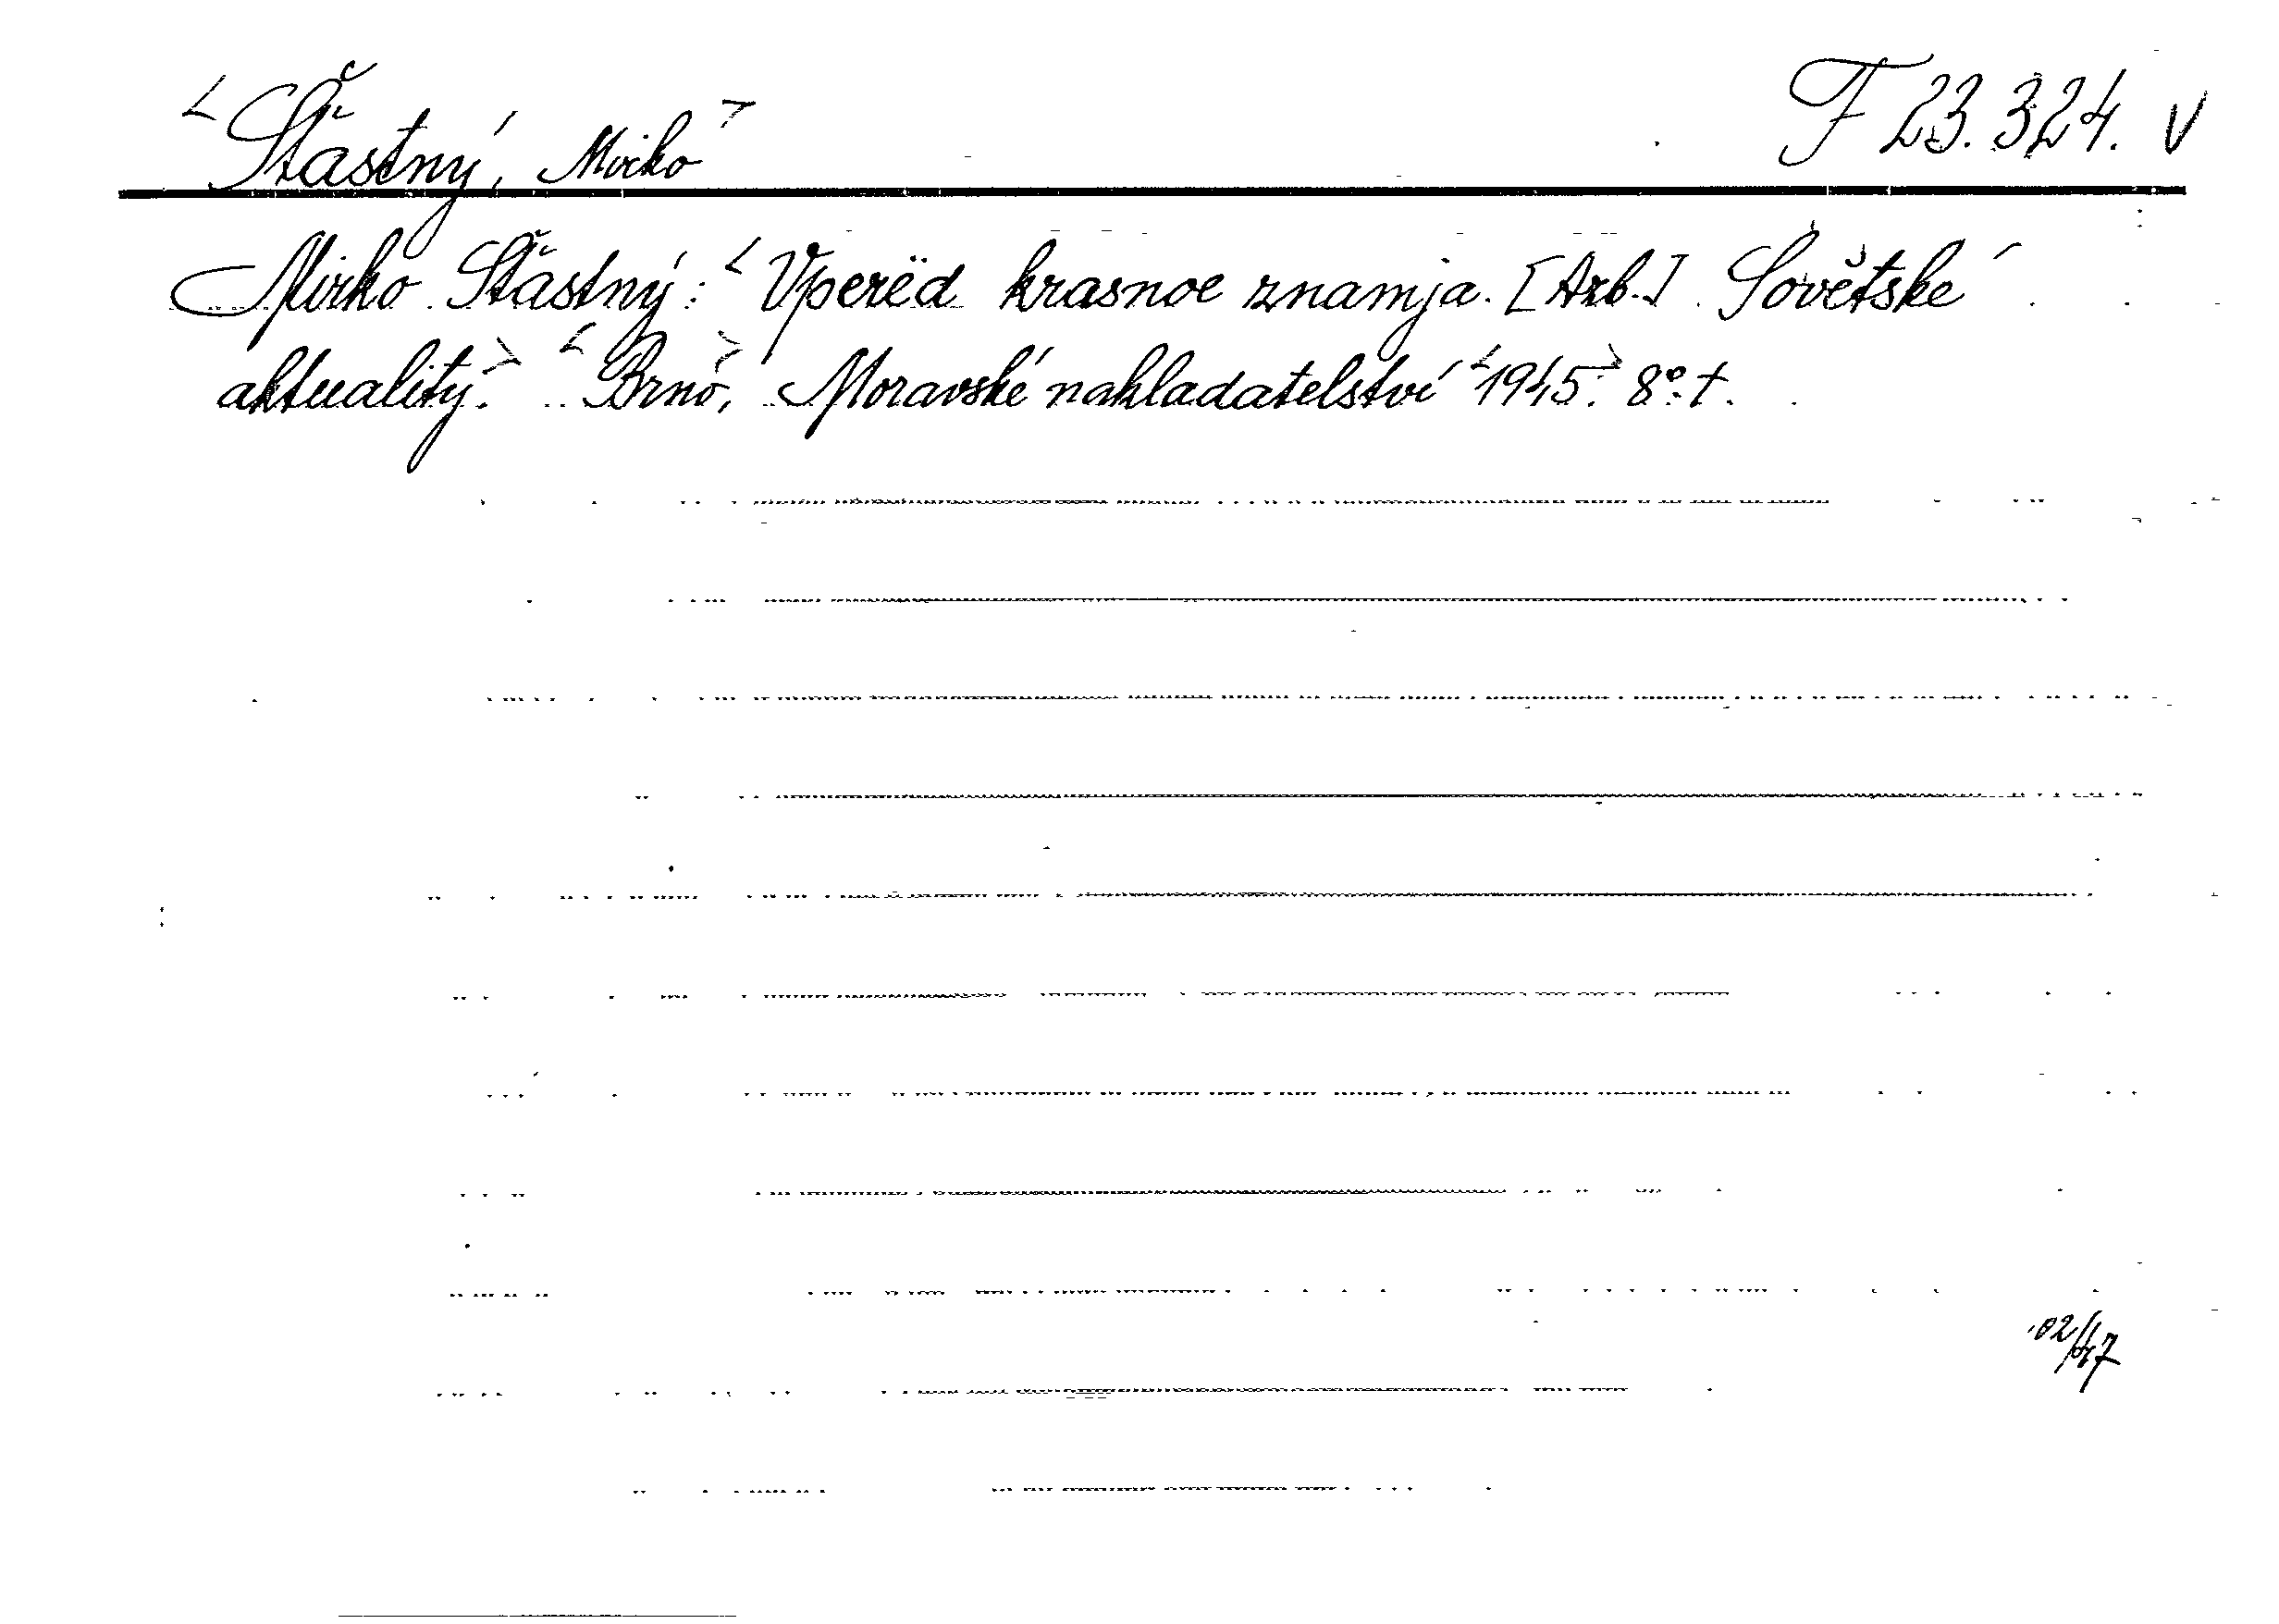 <Šťastný, Mirko> F 23.324. V
Mirko Šťastný: <Vperëd krasnoe znamja. [Azb.] Sovětské
aktuality.> <Brno,> Moravské nakladatelství <1945.> 8° t.
102/47